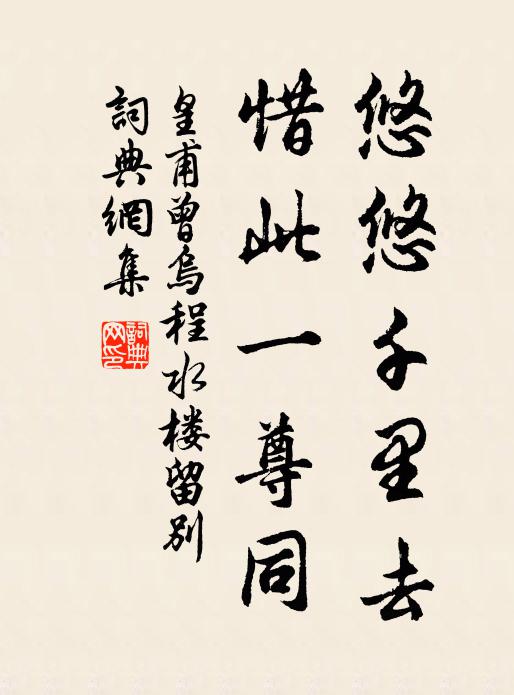 悠悠千里去
惜此一尊同
皇甫曾烏程水楼留别
詞典網集
詞典網印